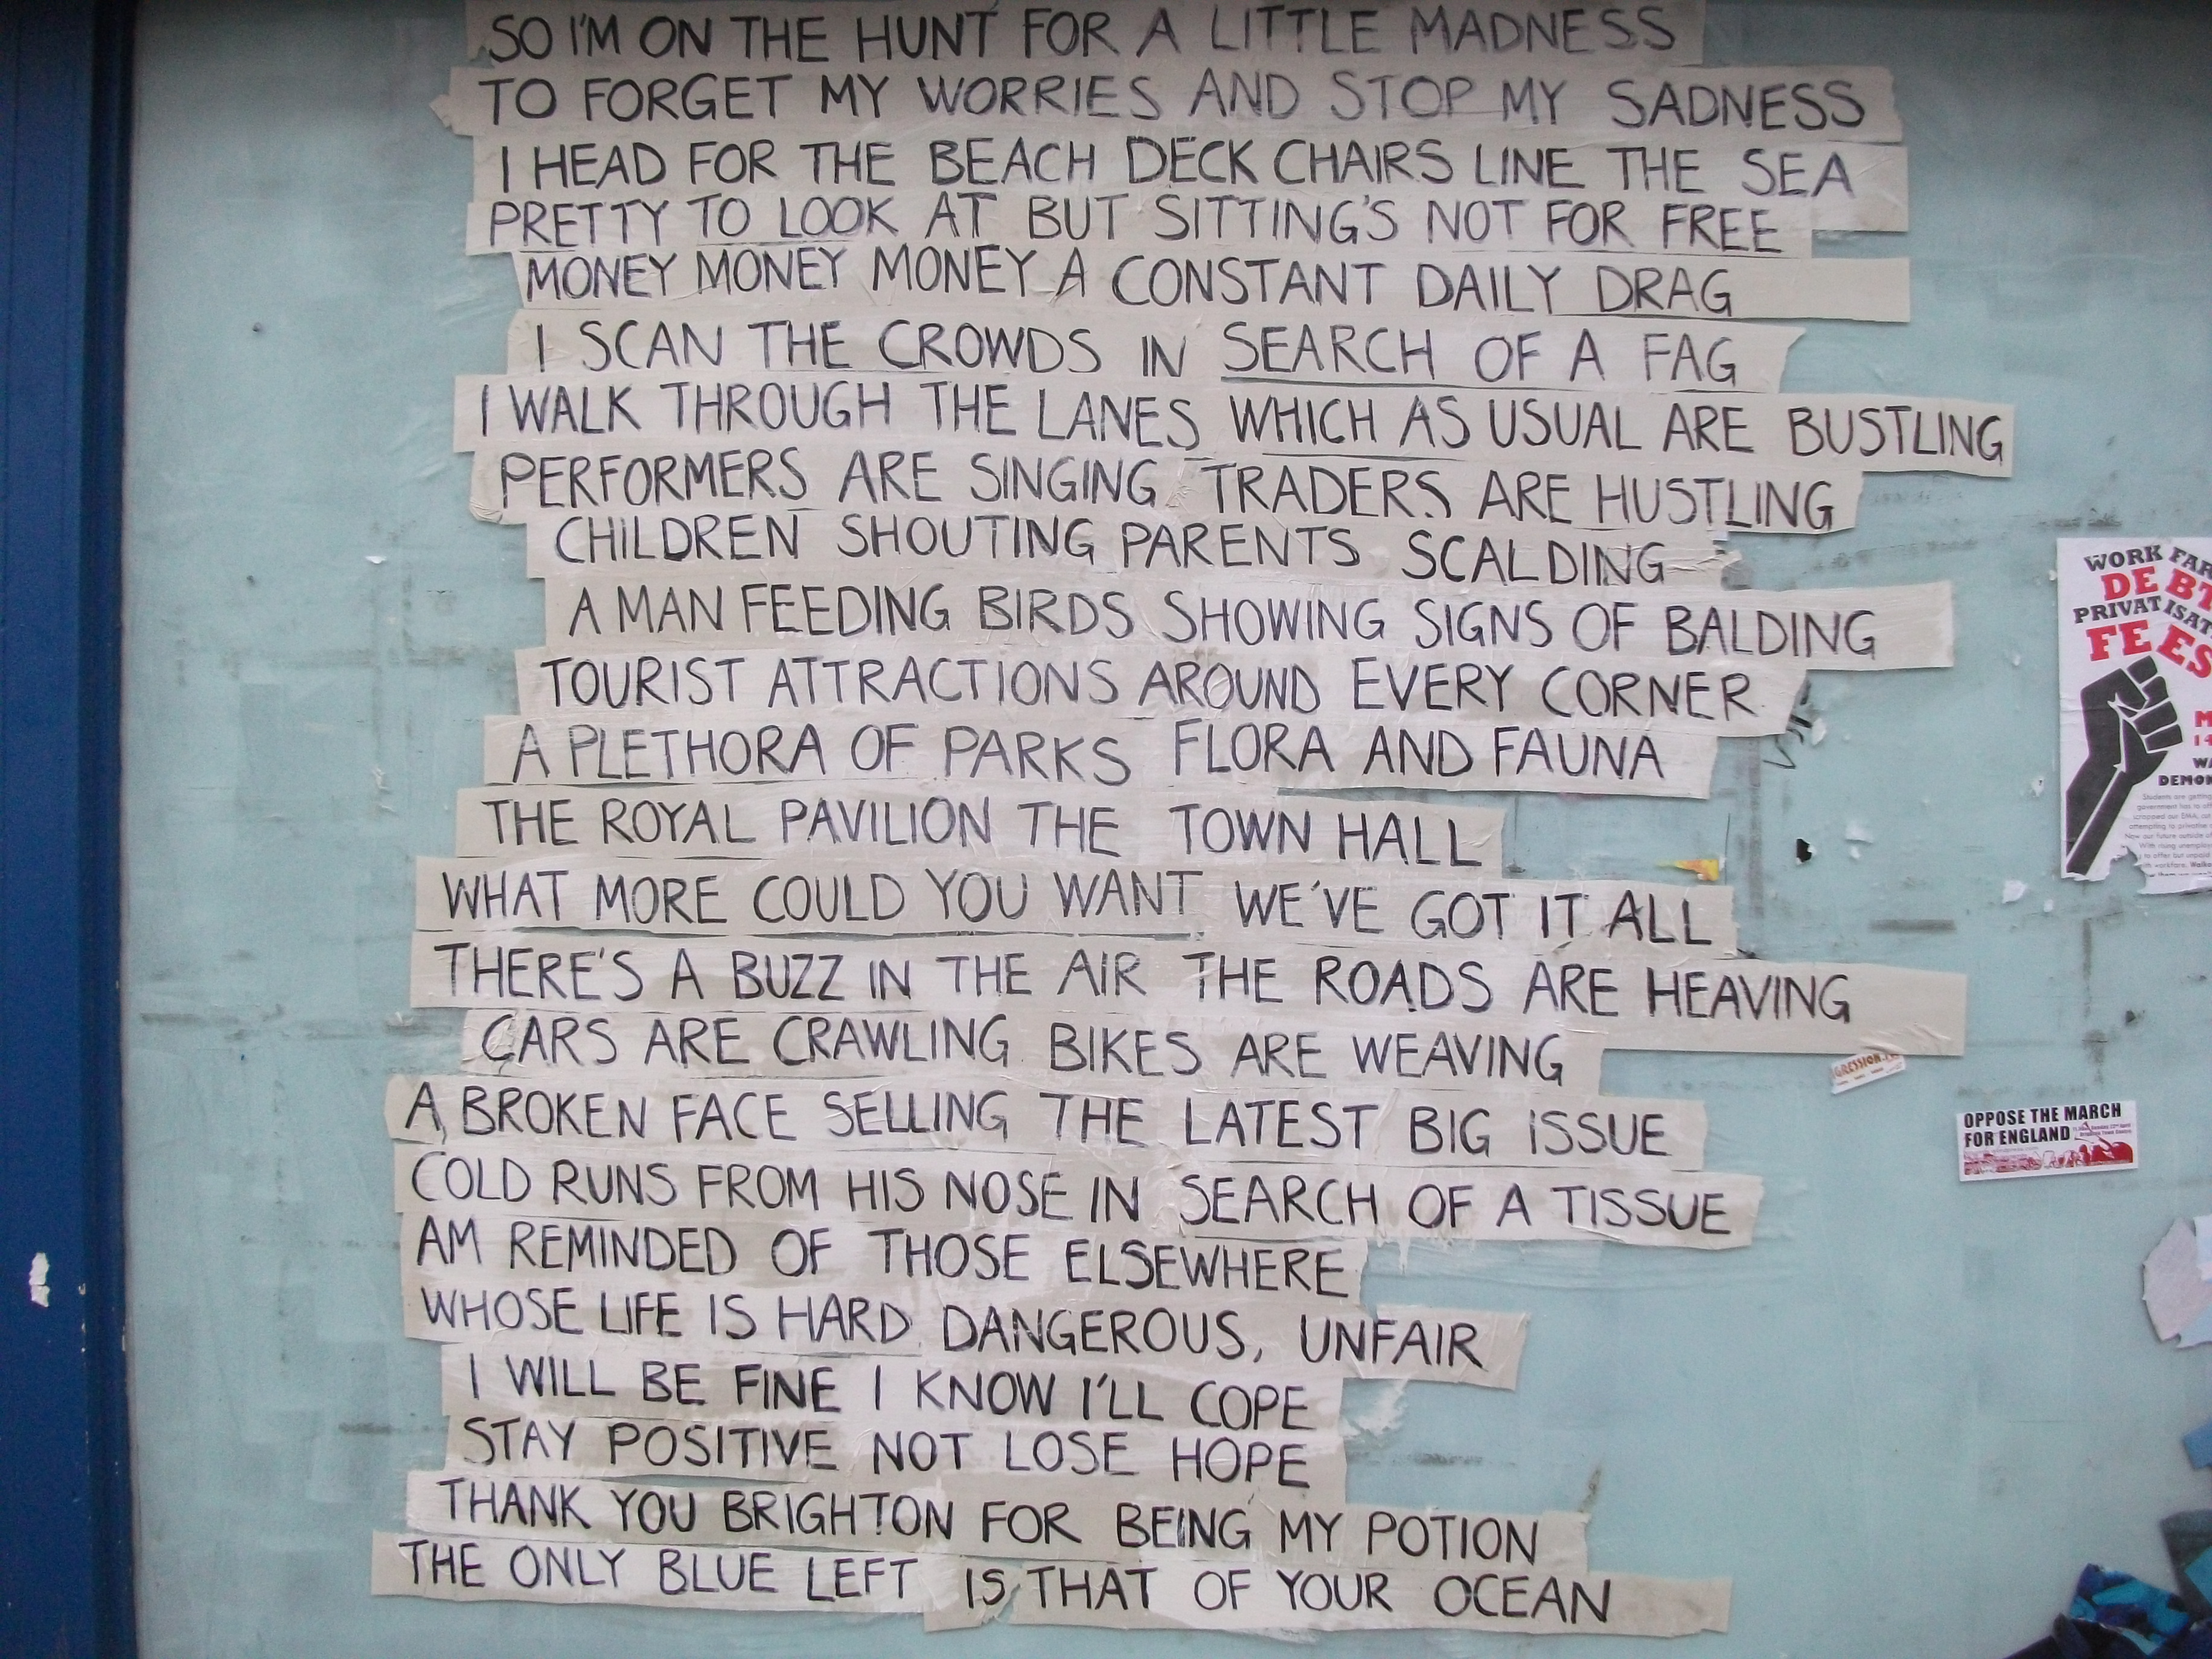 SO I'M ON THE HUNT FOR A LITTLE MADNESS
TO FORGET MY WORRIES AND STOP MY SADNESS
I HEAD FOR THE BEACH DECK CHAIRS LINE THE SEA
PRETTY TO LOOK AT BUT SITTING'S NOT FOR FREE
MONEY MONEY MONEY A CONSTANT DAILY DRAG
I SCAN THE CROWDS IN SEARCH OF A FAG
I WALK THROUGH THE LANES WHICH AS USUAL ARE BUSTLING
PERFORMERS ARE SINGING TRADERS ARE HUSTLING
CHILDREN SHOUTING PARENTS SCALDING
A MAN FEEDING BIRDS SHOWING SIGNS OF BALDING
TOURIST ATTRACTIONS AROUND EVERY CORNER
A PLETHORA OF PARKS FLORA AND FAUNA
THE ROYAL PAVILION THE TOWN HALL
WHAT MORE COULD YOU WANT WE'VE GOT IT ALL
THERE'S A BUZZ IN THE AIR THE ROADS ARE HEAVING
CARS ARE CRAWLING BIKES ARE WEAVING
A BROKEN FACE SELLING THE LATEST BIG ISSUE
COLD RUNS FROM HIS NOSE IN SEARCH OF A TISSUE
AM REMINDED OF THOSE ELSEWHERE
WHOSE LIFE IS HARD DANGEROUS, UNFAIR
I WILL BE FINE I KNOW I'LL COPE
STAY POSITIVE NOT LOSE HOPE
THANK YOU BRIGHTON FOR BEING MY POTION
THE ONLY BLUE LEFT IS THAT OF YOUR OCEAN
WORK FAR
DEBT
PRIVATISAT
FEES
M
14
WA
DEMON
GRESSION
OPPOSE THE MARCH
FOR ENGLAND